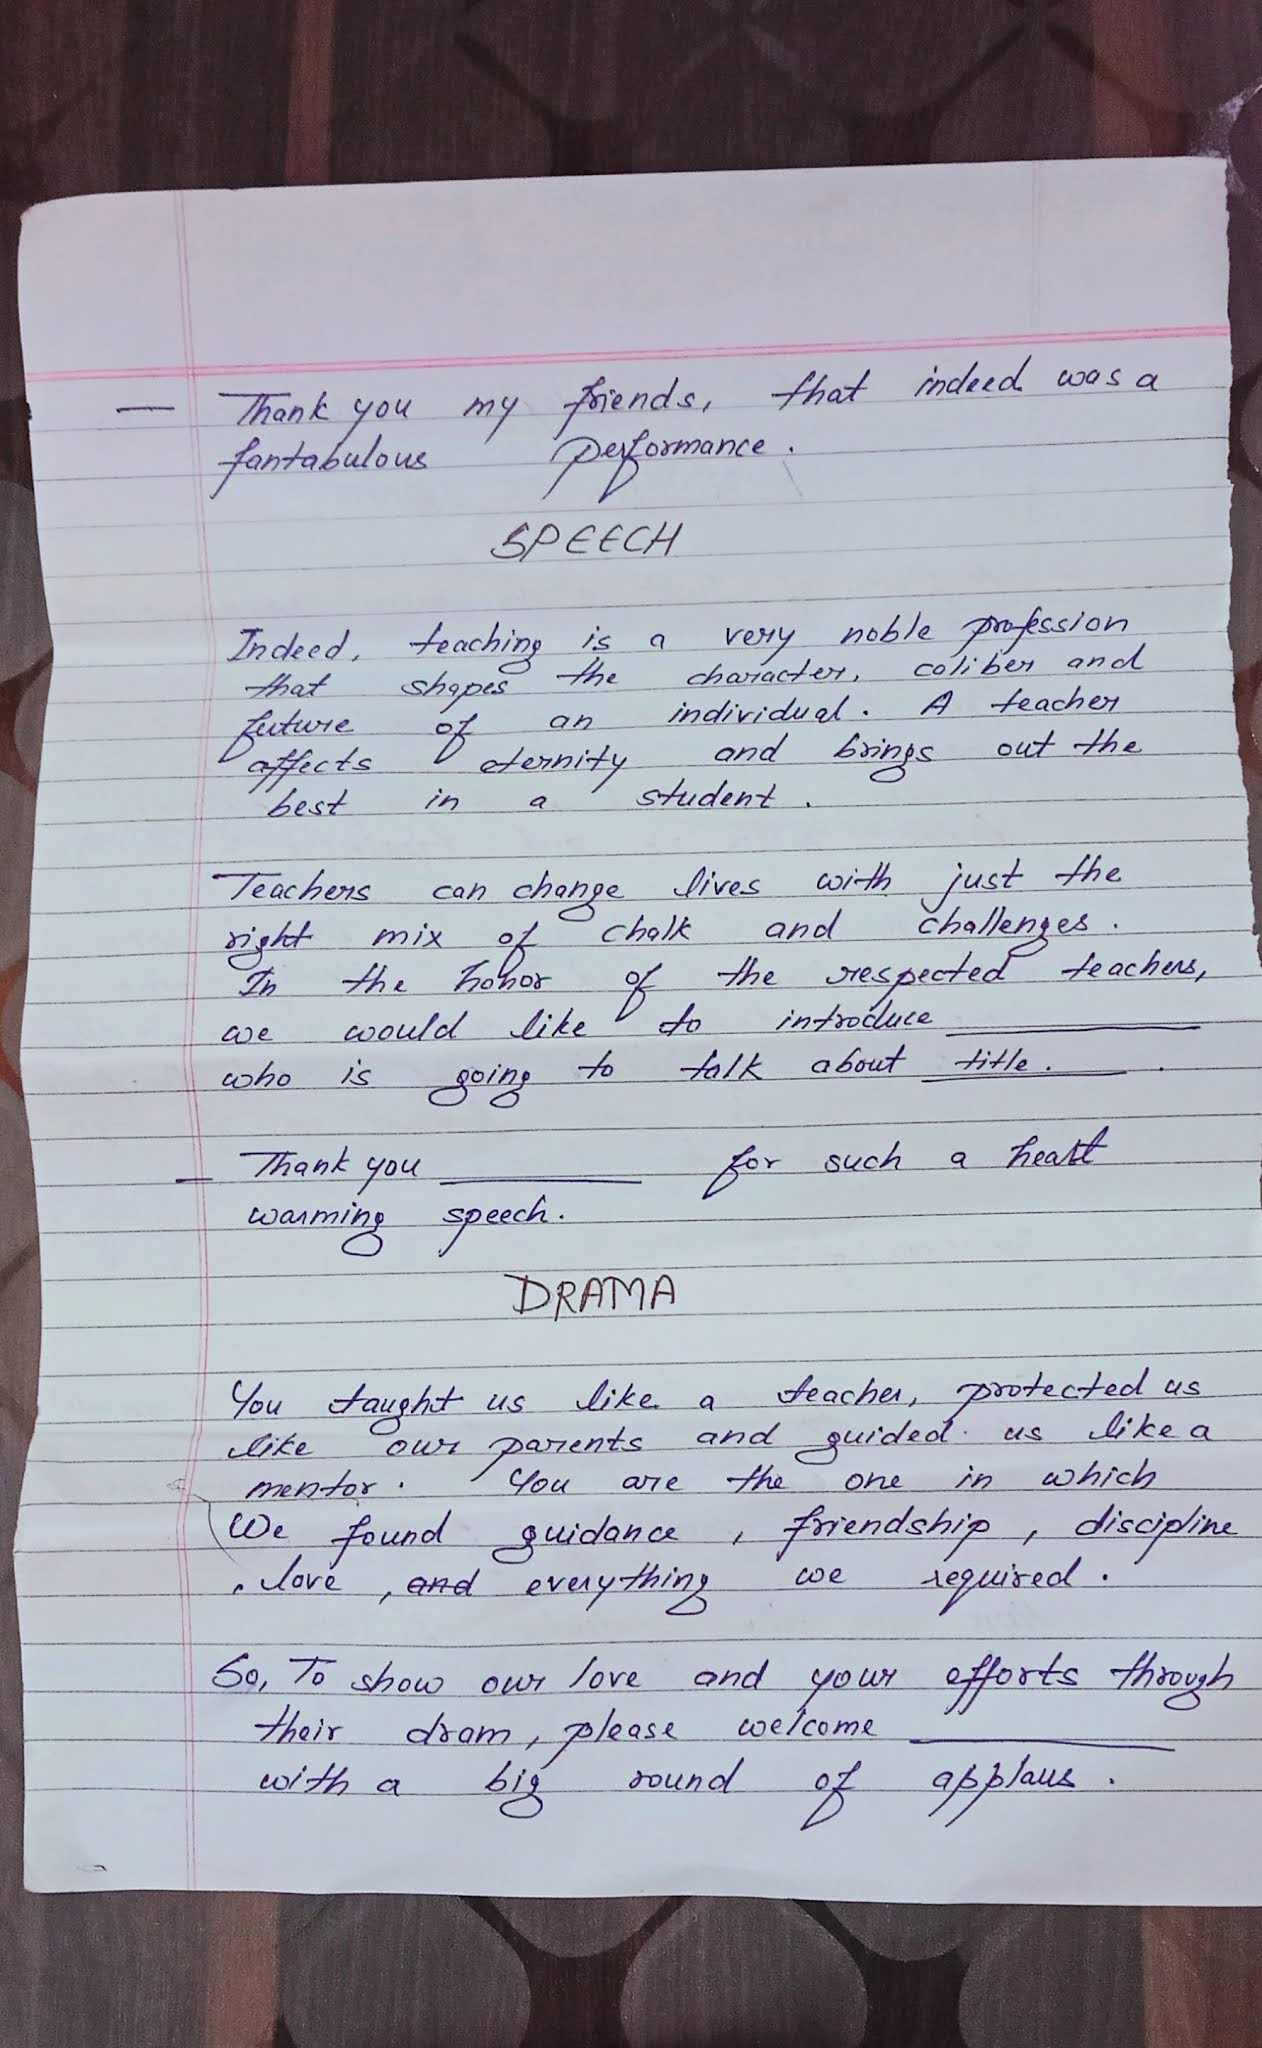 — Thank you my friends, that indeed was a
fantabulous performance.
SPEECH
Indeed, teaching is a very noble profession
that shapes the character, caliber and
future of an individual. A teacher
affects eternity and brings out the
best in a student.
Teachers can change lives with just the
right mix of chalk and challenges.
In the honor of the respected teachers,
we would like to introduce ________
who is going to talk about title. .
— Thank you ________ for such a heart
warming speech.
DRAMA
You taught us like a teacher, protected us
like our parents and guided us like a
mentor. You are the one in which
We found guidance, friendship, discipline
, love, and everything we required.
So, To show our love and your efforts through
their dram, please welcome ________
with a big round of applaus.